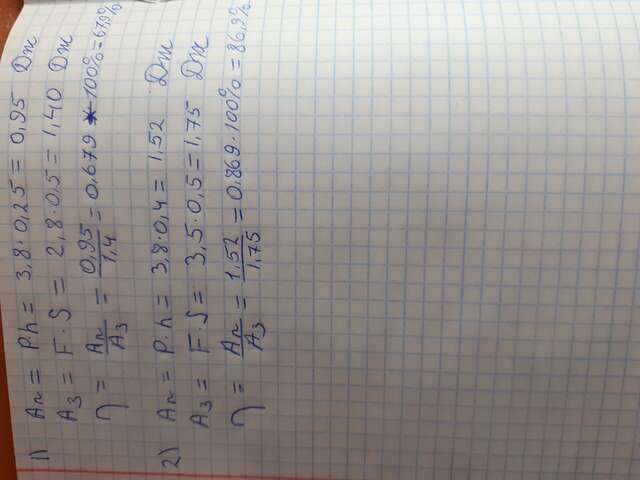 1) Aп = P·h = 3,8·0,25 = 0,95 Дж
Aз = F·S = 2,8·0,5 = 1,40 Дж
η = Aп/Aз = 0,95/1,4 = 0,679 · 100% = 67,9%
2) Aп = P·h = 3,8·0,4 = 1,52 Дж
Aз = F·S = 3,5·0,5 = 1,75 Дж
η = Aп/Aз = 1,52/1,75 = 0,869·100% = 86,9%